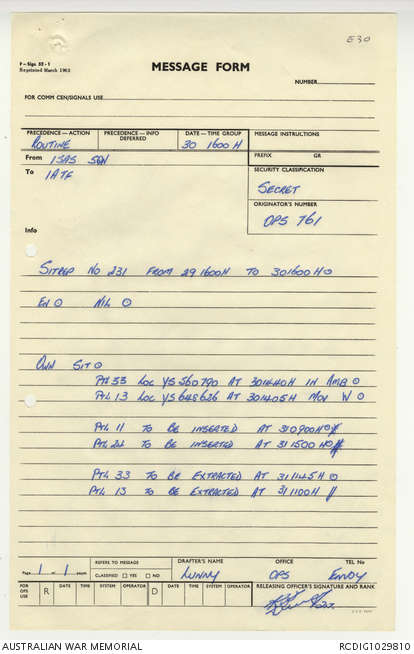 E30
F—Sigs. 52-1
Reprinted March 1963
MESSAGE FORM
NUMBER
FOR COMM CEN/SIGNALS USE
PRECEDENCE—ACTION PRECEDENCE—INFO DEFERRED DATE—TIME GROUP MESSAGE INSTRUCTIONS
ROUTINE 30 1600 H
From 1SAS SQN PREFIX GR
To 1ATF SECURITY CLASSIFICATION
SECRET
ORIGINATOR'S NUMBER
OPS 761
Info
SITREP NO 231 FROM 29 1600H TO 301600H ⊙
EN ⊙ NIL ⊙
OWN SIT ⊙
PTL 33 LOC YS 560790 AT 301440H IN AMB ⊙
PTL 13 LOC YS 648626 AT 301405H MOV W ⊙
PTL 11 TO BE INSERTED AT 310900H ⊙ //
PTL 24 TO BE INSERTED AT 311500 H ⊙ //
PTL 33 TO BE EXTRACTED AT 311145H ⊙
PTL 13 TO BE EXTRACTED AT 311100H //
Page 1 of 1 pages REFERS TO MESSAGE DRAFTER'S NAME OFFICE TEL No
CLASSIFIED □ YES □ NO LUNNY OPS
FOR OPS USE R DATE TIME SYSTEM OPERATOR D DATE TIME SYSTEM OPERATOR RELEASING OFFICER'S SIGNATURE AND RANK
AUSTRALIAN WAR MEMORIAL RCDIG1029810